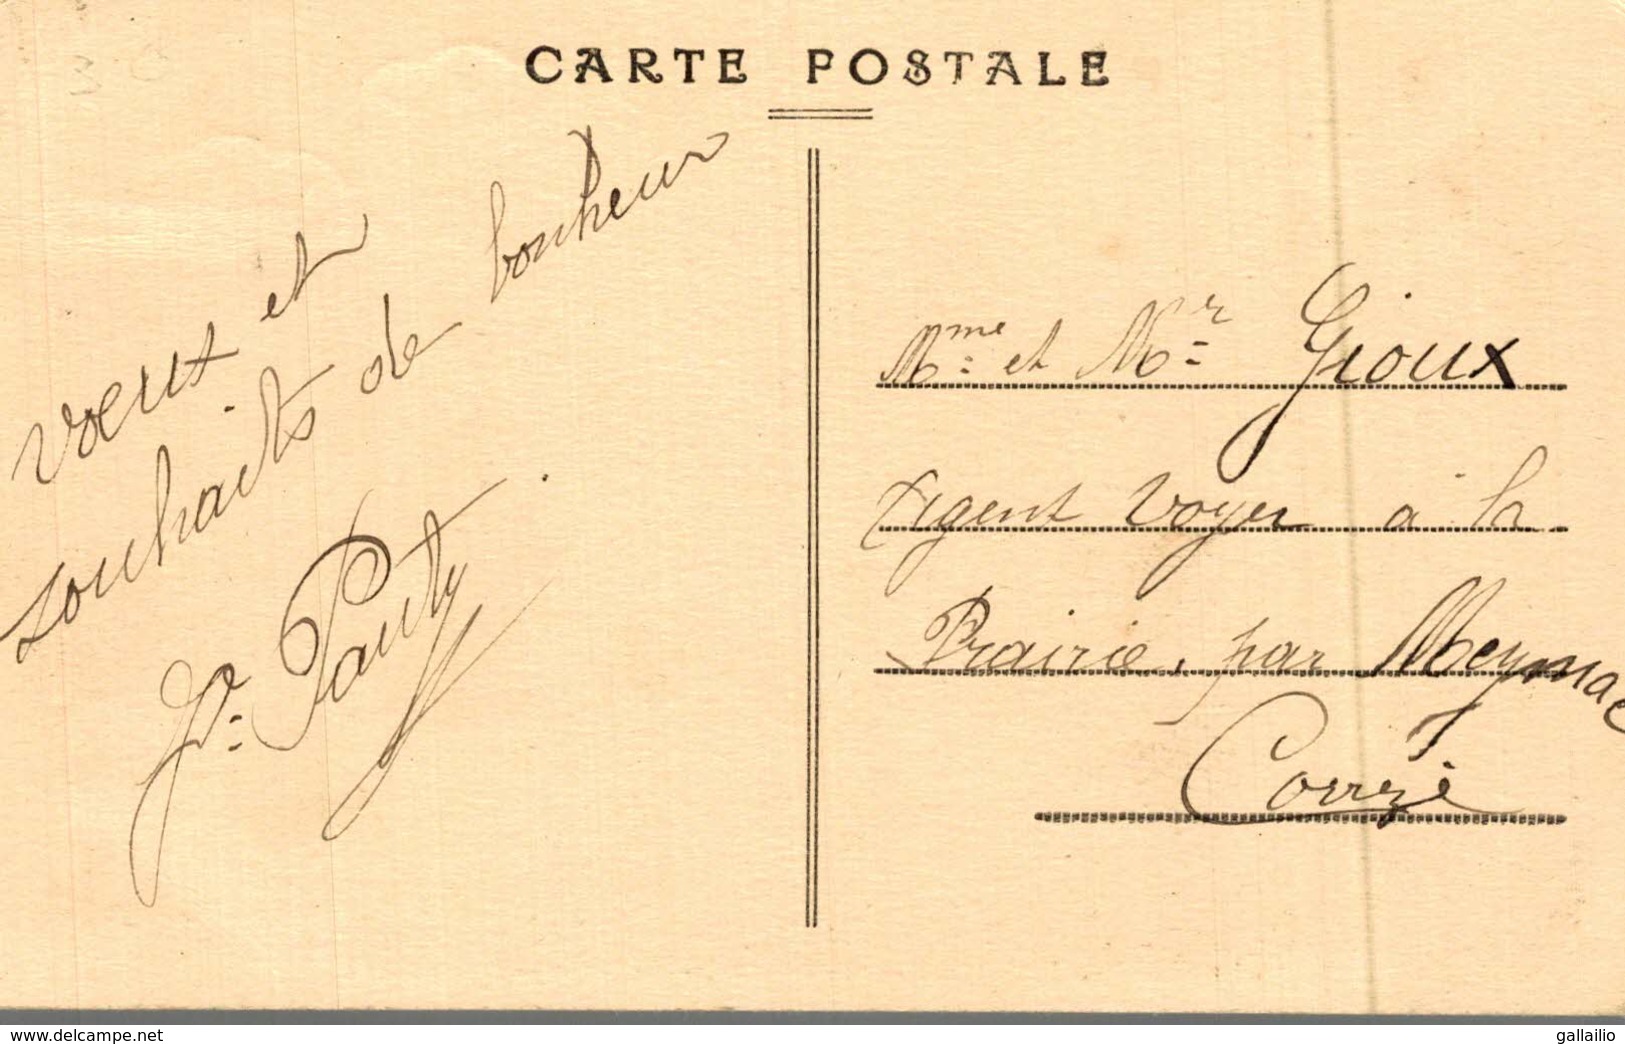 CARTE POSTALE
Voeux et
souhaits de bonheur
Mme et Mr Gioux
Agent Voyer à la
Prairie, par Meymac
Corrèze
www.delcampe.net
gallailio